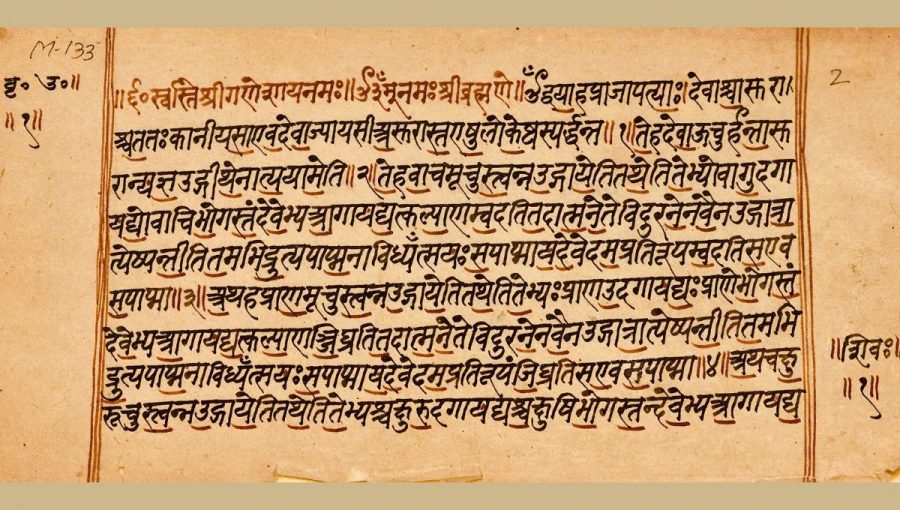 M-133
बृ॰ उ॰॥
॥१॥
2
॥६॰ स्वस्तिश्रीगणेशायनमः॥ॐ३मूनमःश्रीब्रह्मणे॥ॐद्वयाहप्राजापत्याः॥देवाश्चासुरा
श्चततःकानीयसाएवदेवाज्यायसीअसुरास्तएषुलोकेष्वस्पर्द्धन्त॥१तेहदेवाऊचुर्हन्तासु
रान्यज्ञउद्गीथेनात्ययामेति॥२॥तेहवाचमूचुस्त्वन्नउद्गायेतितथेतितेभ्योवागुदगा
यद्योवाचिभोगस्तंदेवेभ्यआगायद्यत्कल्याणम्वदतितदात्मनेतेविदुरनेनवैनउद्गात्रा
त्येष्यन्तीतितमभिद्रुत्यपाप्मनाविध्यँत्सयःसपाप्मायदेवेदमप्रतिरूपम्वदतिसएव
सपाप्मा॥३॥अथहप्राणमूचुस्त्वन्नउद्गायेतितथेतितेभ्यःप्राणउदगायद्यःप्राणेभोगस्तं
देवेभ्यआगायद्यत्कल्याणञ्जिघ्रतितदात्मनेतेविदुरनेनवैनउद्गात्रात्येष्यन्तीतितमभि
द्रुत्यपाप्मनाविध्यँत्सयःसपाप्मायदेवेदमप्रतिरूपंजिघ्रतिसएवसपाप्मा॥४॥अथचक्षु
रूचुस्त्वन्नउद्गायेतितथेतितेभ्यश्चक्षुरुदगायद्यश्चक्षुषिभोगस्तन्देवेभ्यआगायद्य
॥शिवः॥
॥१॥